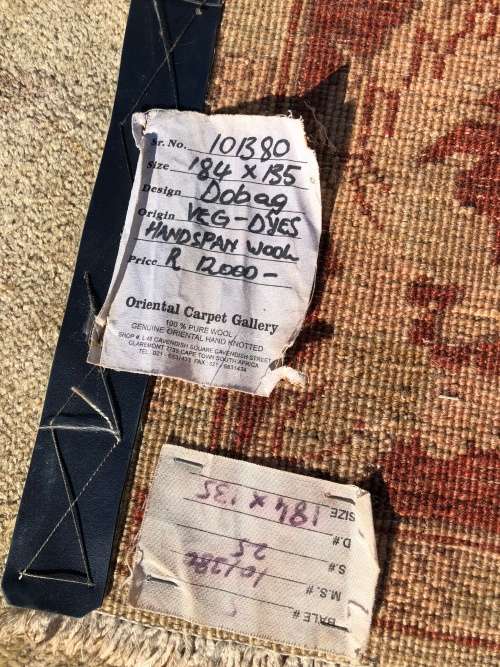 Sr. No. 101380
Size 184 x 135
Design Dobag
Origin VEG-DYES
HANDSPAN WOOL
Price R 12000-
Oriental Carpet Gallery
100 % PURE WOOL
GENUINE ORIENTAL HAND KNOTTED
SHOP # L 48 CAVENDISH SQUARE CAVENDISH STREET
CLAREMONT 7735 CAPE TOWN SOUTH AFRICA
TEL. 021 - 6831433 FAX 021 - 6831434
BALE #
M.S.# 101380
S.# 25
D.#
SIZE 184 x 135